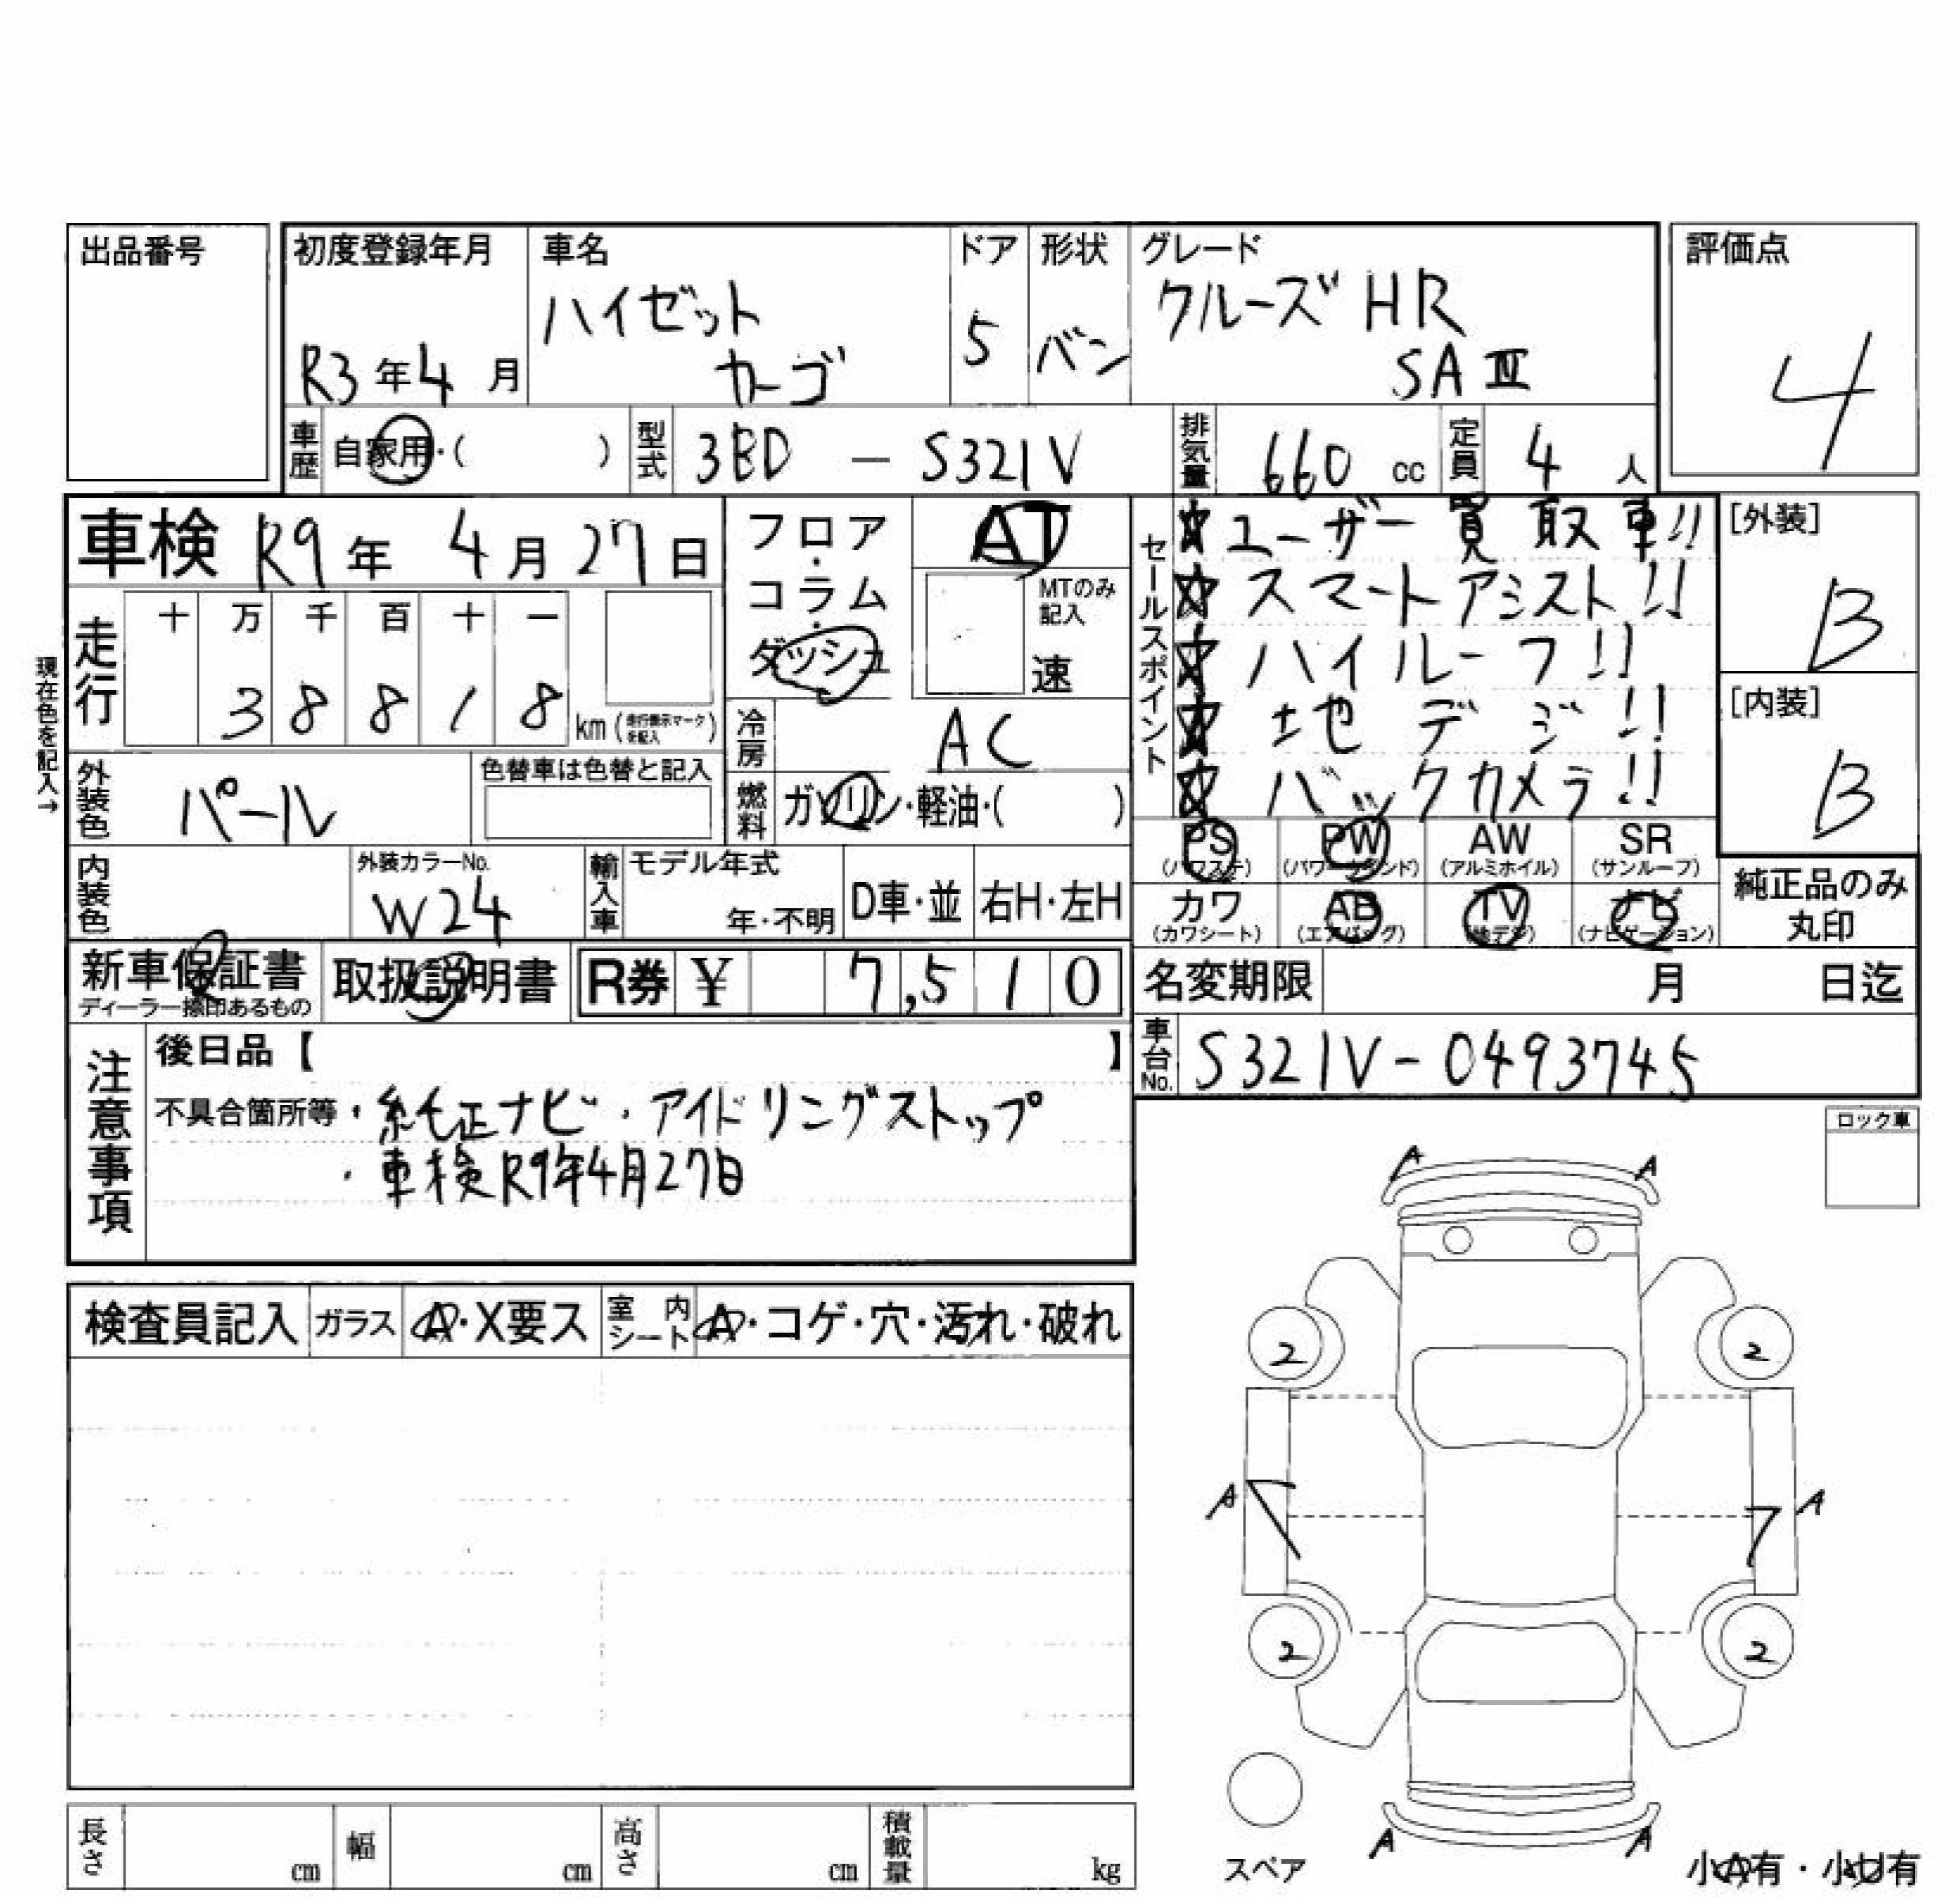 出品番号
初度登録年月
R3年4月
車名
ハイゼット
カーゴ
ドア
5
形状
バン
グレード
クルーズ HR
SAⅢ
評価点
4
車歴 自家用・( )
型式 3BD - S321V
排気量 660 cc
定員 4 人
車検 R9年 4月 27日
フロア・コラム・ダッシュ
AT
MTのみ記入
速
セールスポイント
☆ユーザー買取車!!
☆スマートアシスト!!
☆ハイルーフ!!
☆地デジ!!
☆バックカメラ!!
[外装]
B
[内装]
B
現在色を記入→
走行
十 万 千 百 十 一
3 8 8 1 8 km (走行表示マークを記入)
冷房 AC
燃料 ガソリン・軽油・( )
外装色 パール
色替車は色替と記入
内装色
外装カラーNo.
W24
輸入車
モデル年式
年・不明
D車・並
右H・左H
PS (パワステ)
PW (パワーウィンド)
AW (アルミホイル)
SR (サンルーフ)
カワ (カワシート)
AB (エアバッグ)
TV (地デジ)
ナビ (ナビゲーション)
純正品のみ
丸印
新車保証書
ディーラー捺印あるもの
取扱説明書
R券 ¥ 7,510
名変期限 月 日迄
車台No. S321V-0493745
注意事項
後日品【 】
不具合箇所等・純正ナビ・アイドリングストップ
・車検R9年4月27日
ロック車
検査員記入
ガラス A・X要ス
室内シート A・コゲ・穴・汚れ・破れ
A A
2 2
A A
2 2
A A
スペア
小A有・小U有
長さ cm
幅 cm
高さ cm
積載量 kg